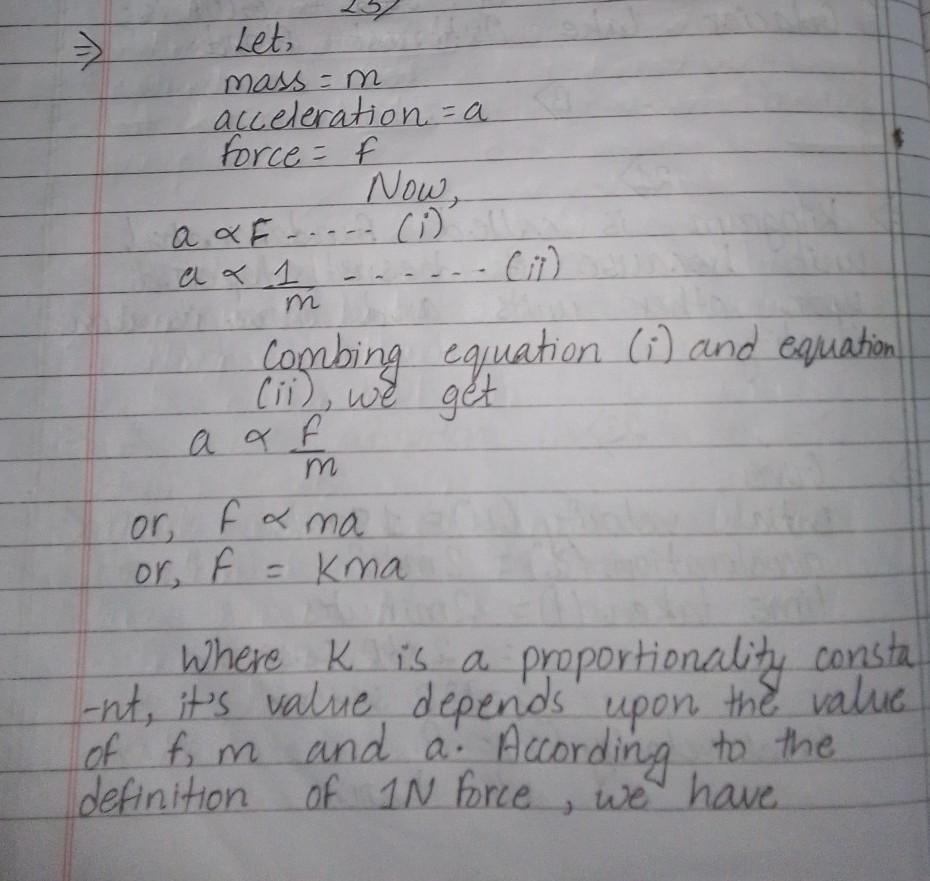 23)
⇒ Let,
mass = m
acceleration = a
force = f
Now,
a ∝ F ----- (i)
a ∝ 1/m ------ (ii)
Combing equation (i) and equation
(ii), we get
a ∝ f/m
or, f ∝ ma
or, f = Kma
Where K is a proportionality consta
-nt, it's value depends upon the value
of f, m and a. According to the
definition of 1N force, we have